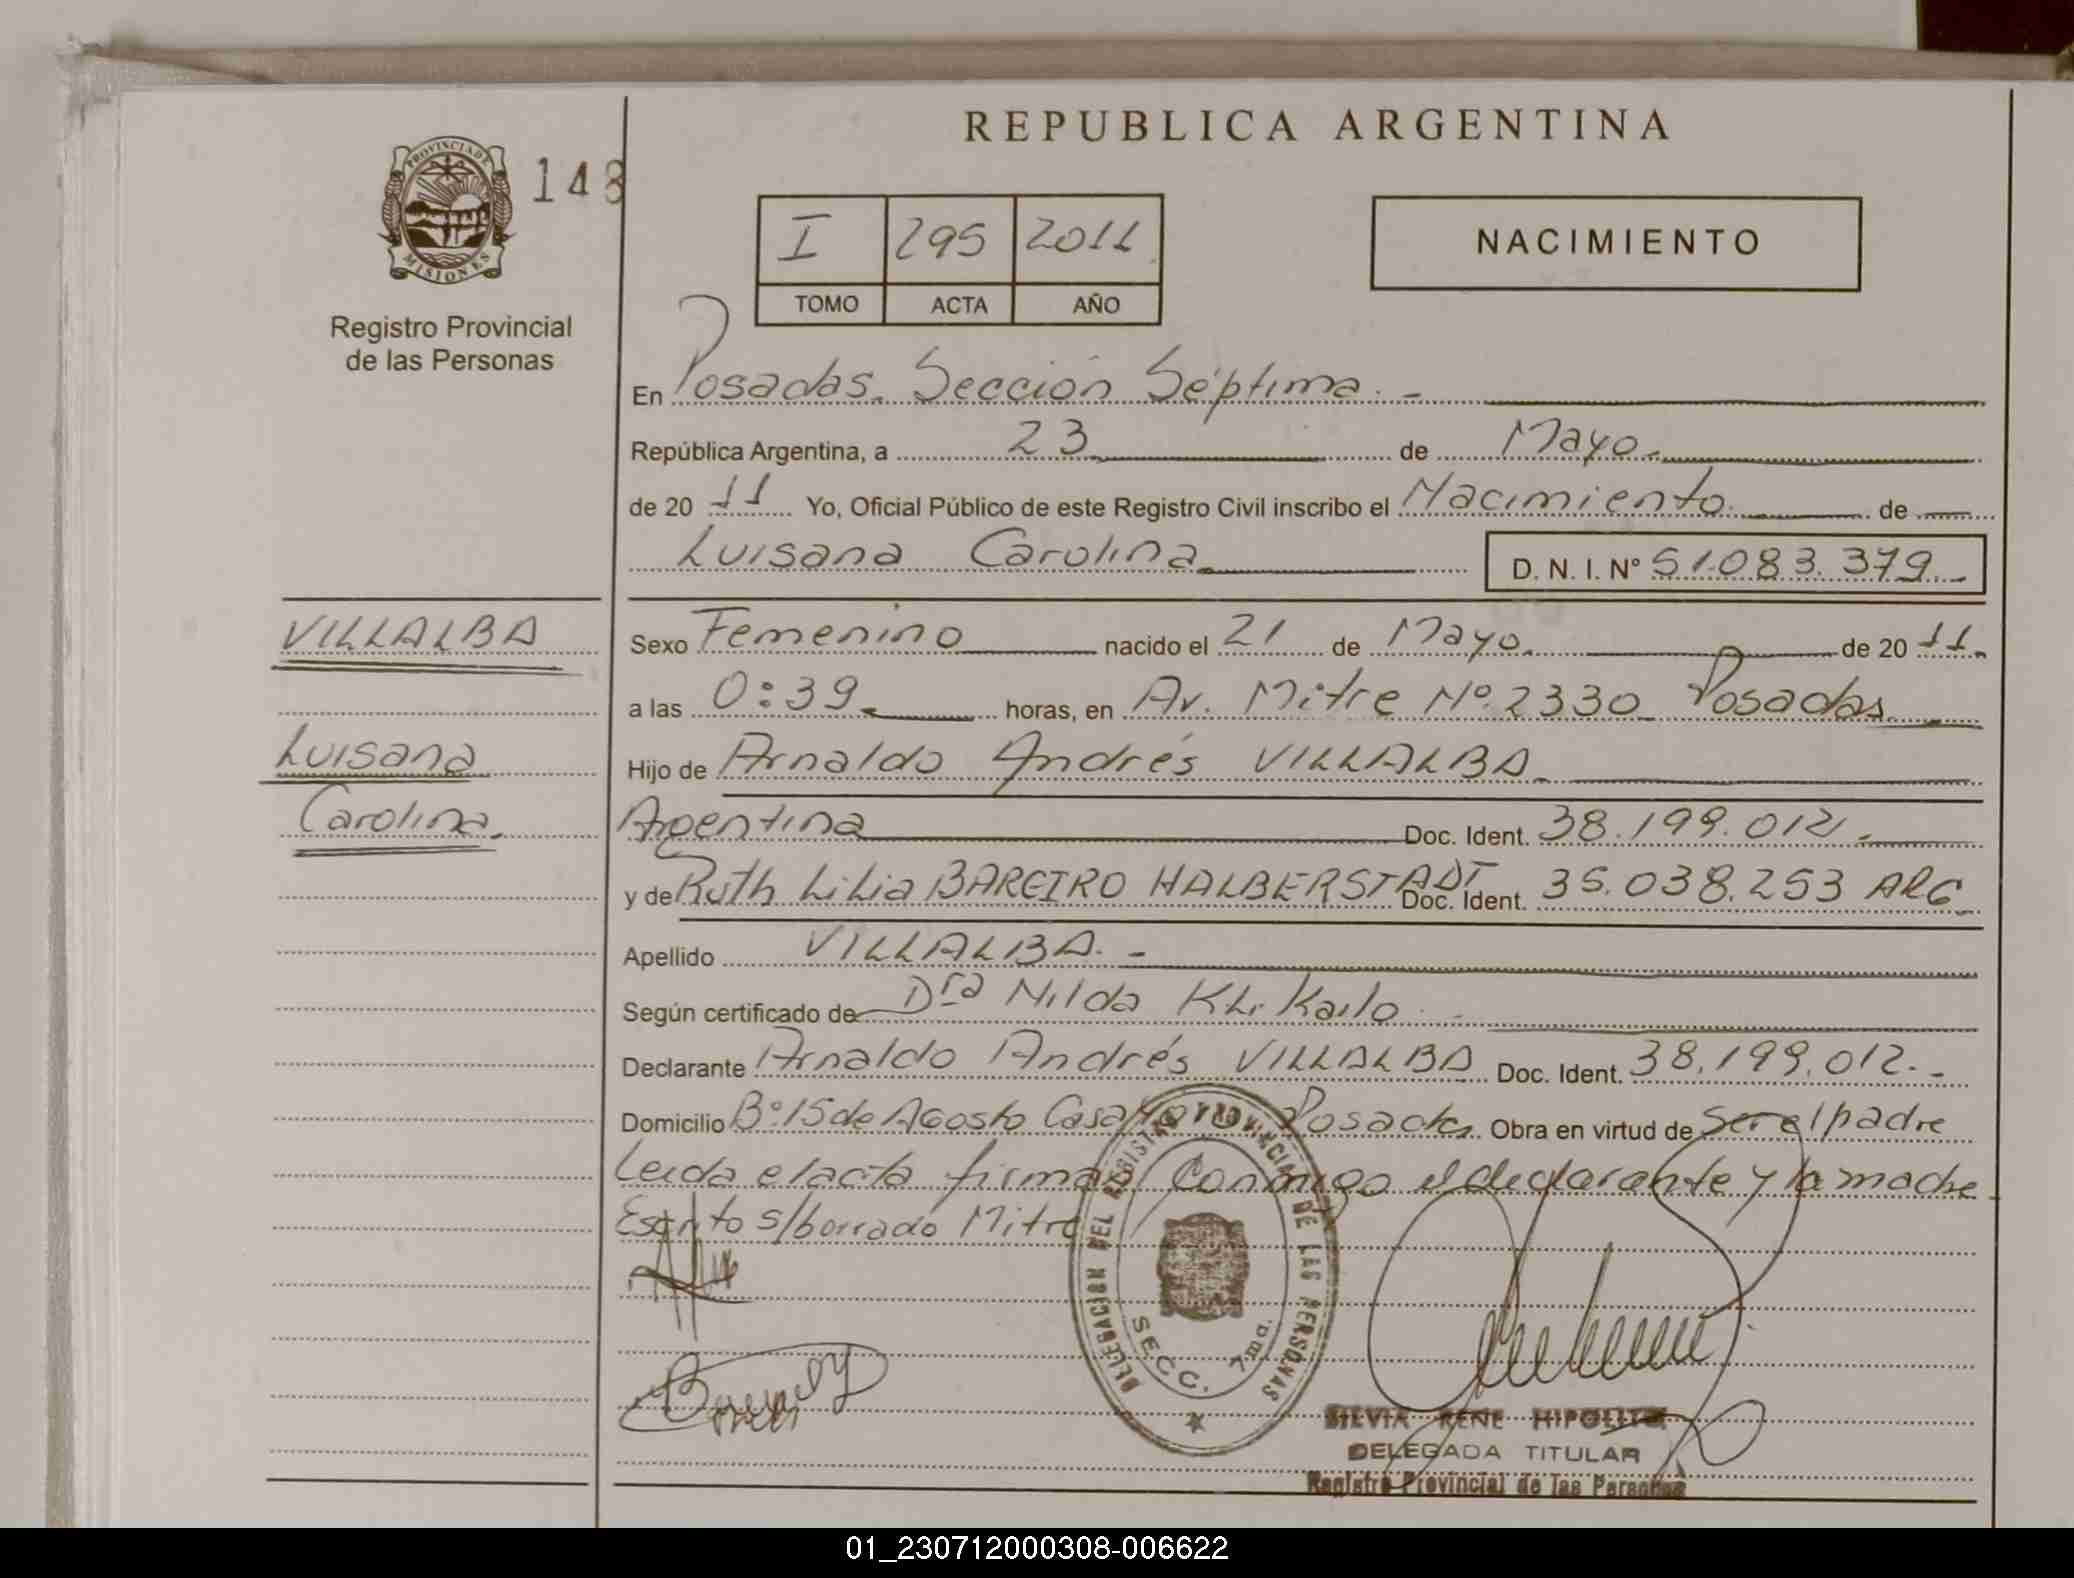 REPUBLICA ARGENTINA
PROVINCIA DE
MISIONES
148
Registro Provincial
de las Personas
I 295 2011
TOMO ACTA AÑO
NACIMIENTO
En Posadas. Sección Séptima. -
República Argentina, a 23 de Mayo.
de 20 11 Yo, Oficial Público de este Registro Civil inscribo el Nacimiento de
Luisana Carolina D. N. I. Nº 51.083.379.
VILLALBA
Luisana
Carolina.
Sexo Femenino nacido el 21 de Mayo. de 20 11.
a las 0:39 horas, en Av. Mitre Nº 2330 Posadas.
Hijo de Arnaldo Andrés VILLALBA
Argentina Doc. Ident. 38.199.012.
y de Ruth Lilia BAREIRO HALBERSTADT Doc. Ident. 35.038.253 ARG
Apellido VILLALBA. -
Según certificado de Dra Nilda
Declarante Arnaldo Andrés VILLALBA Doc. Ident. 38.199.012. -
Domicilio Bº 15 de Agosto Casa Posadas. Obra en virtud de Ser el padre
Leida el acta firman conmigo el declarante y la madre
Escrito s/borrado Mitre
DELEGACION DEL REGISTRO PROVINCIAL DE LAS PERSONAS
SECC. 7ma.
SILVIA RENE HIPOLITO
DELEGADA TITULAR
Registro Provincial de las Personas
01_230712000308-006622